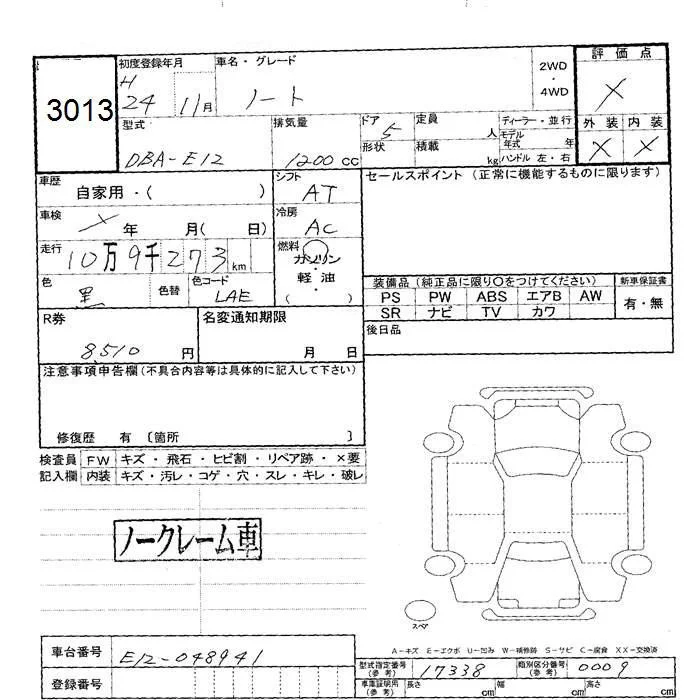 3013
初度登録年月
H
24 11月
車名・グレード
ノート
2WD
・
4WD
評価点
X
型式
DBA-E12
排気量
1200 cc
ドア
5
形状
定員
人
積載
kg
ディーラー・並行
モデル
年式 年
ハンドル 左・右
外装 内装
X X
車歴
自家用・( )
車検
X 年 月( 日)
走行
10万9千273km
色
黒
色替
色コード
LAE
シフト
AT
冷房
AC
燃料
ガソリン
・
軽油
( )
セールスポイント (正常に機能するものに限ります)
装備品 (純正品に限り〇をつけてください)
新車保証書
PS PW ABS エアB AW
SR ナビ TV カワ
有・無
後日品
R券
8,510 円
名変通知期限
月 日
注意事項申告欄 (不具合内容等は具体的に記入して下さい)
修復歴 有 〔箇所 〕
検査員 FW キズ・飛石・ヒビ割・リペア跡・×要
記入欄 内装 キズ・汚レ・コゲ・穴・スレ・キレ・破レ
ノークレーム車
スペア
A-キズ E-エクボ U-凹み W-補修跡 S-サビ C-腐食 XX-交換済
車台番号
E12-048941
登録番号
型式指定番号
(参考)
17338
類別区分番号
(参考)
0009
車庫証明用
(参考)
長さ cm 幅 cm cm